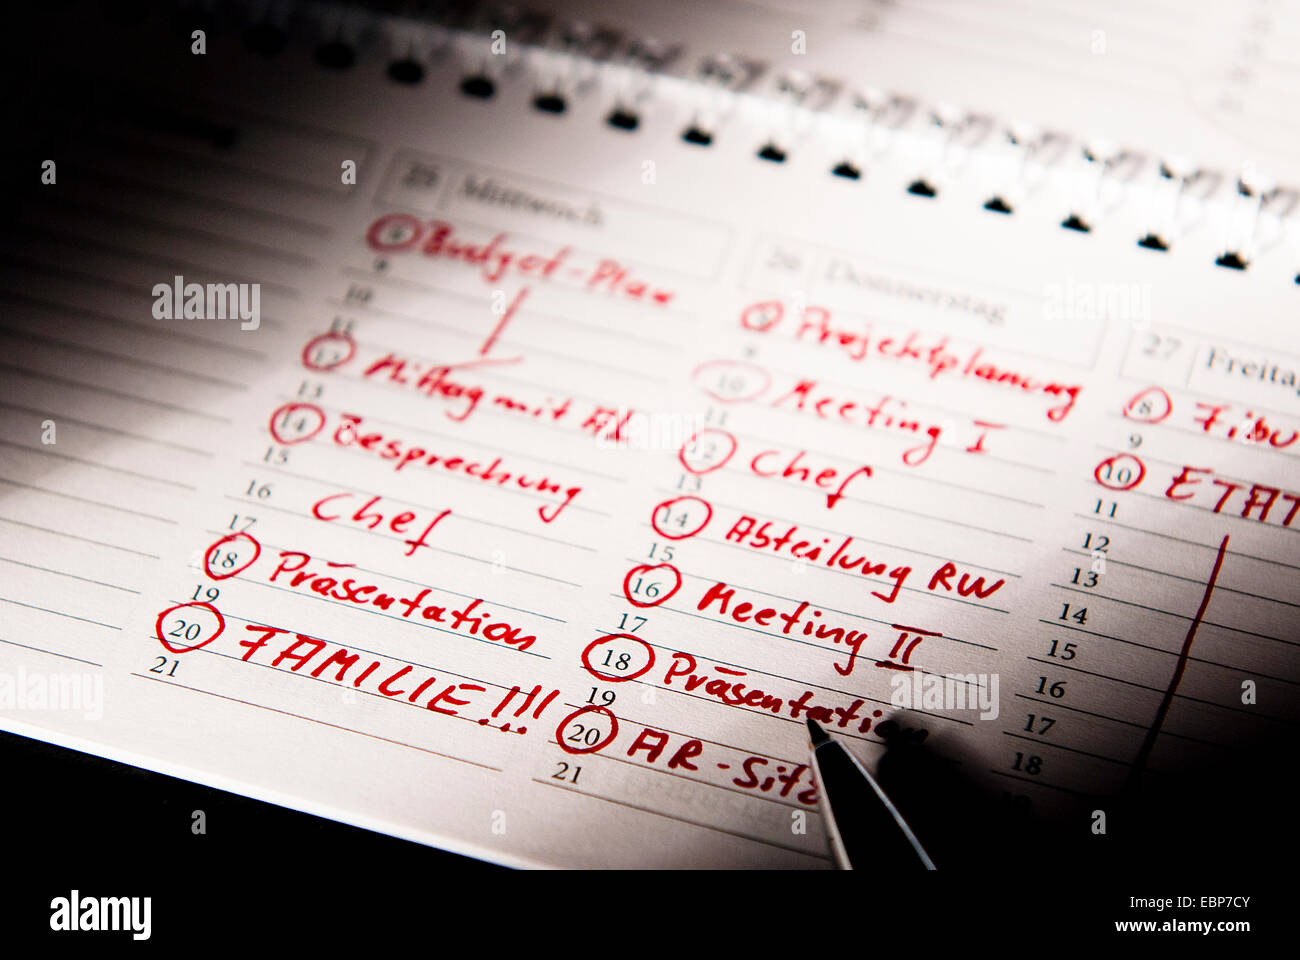 25 Mittwoch
8 Budget-Plan
9
10
11
12 Mittag mit AL
13
14 Besprechung
15
16 Chef
17
18 Präsentation
19
20 FAMILIE!!!
21
26 Donnerstag
8 Projektplanung
9
10 Meeting I
11
12 Chef
13
14 Abteilung RW
15
16 Meeting II
17
18 Präsentation
19
20 AR-Sitz
21
27 Freitag
8 Fibu
9
10 ETAT
11
12
13
14
15
16
17
18
19
alamy
Image ID: EBP7CY
www.alamy.com